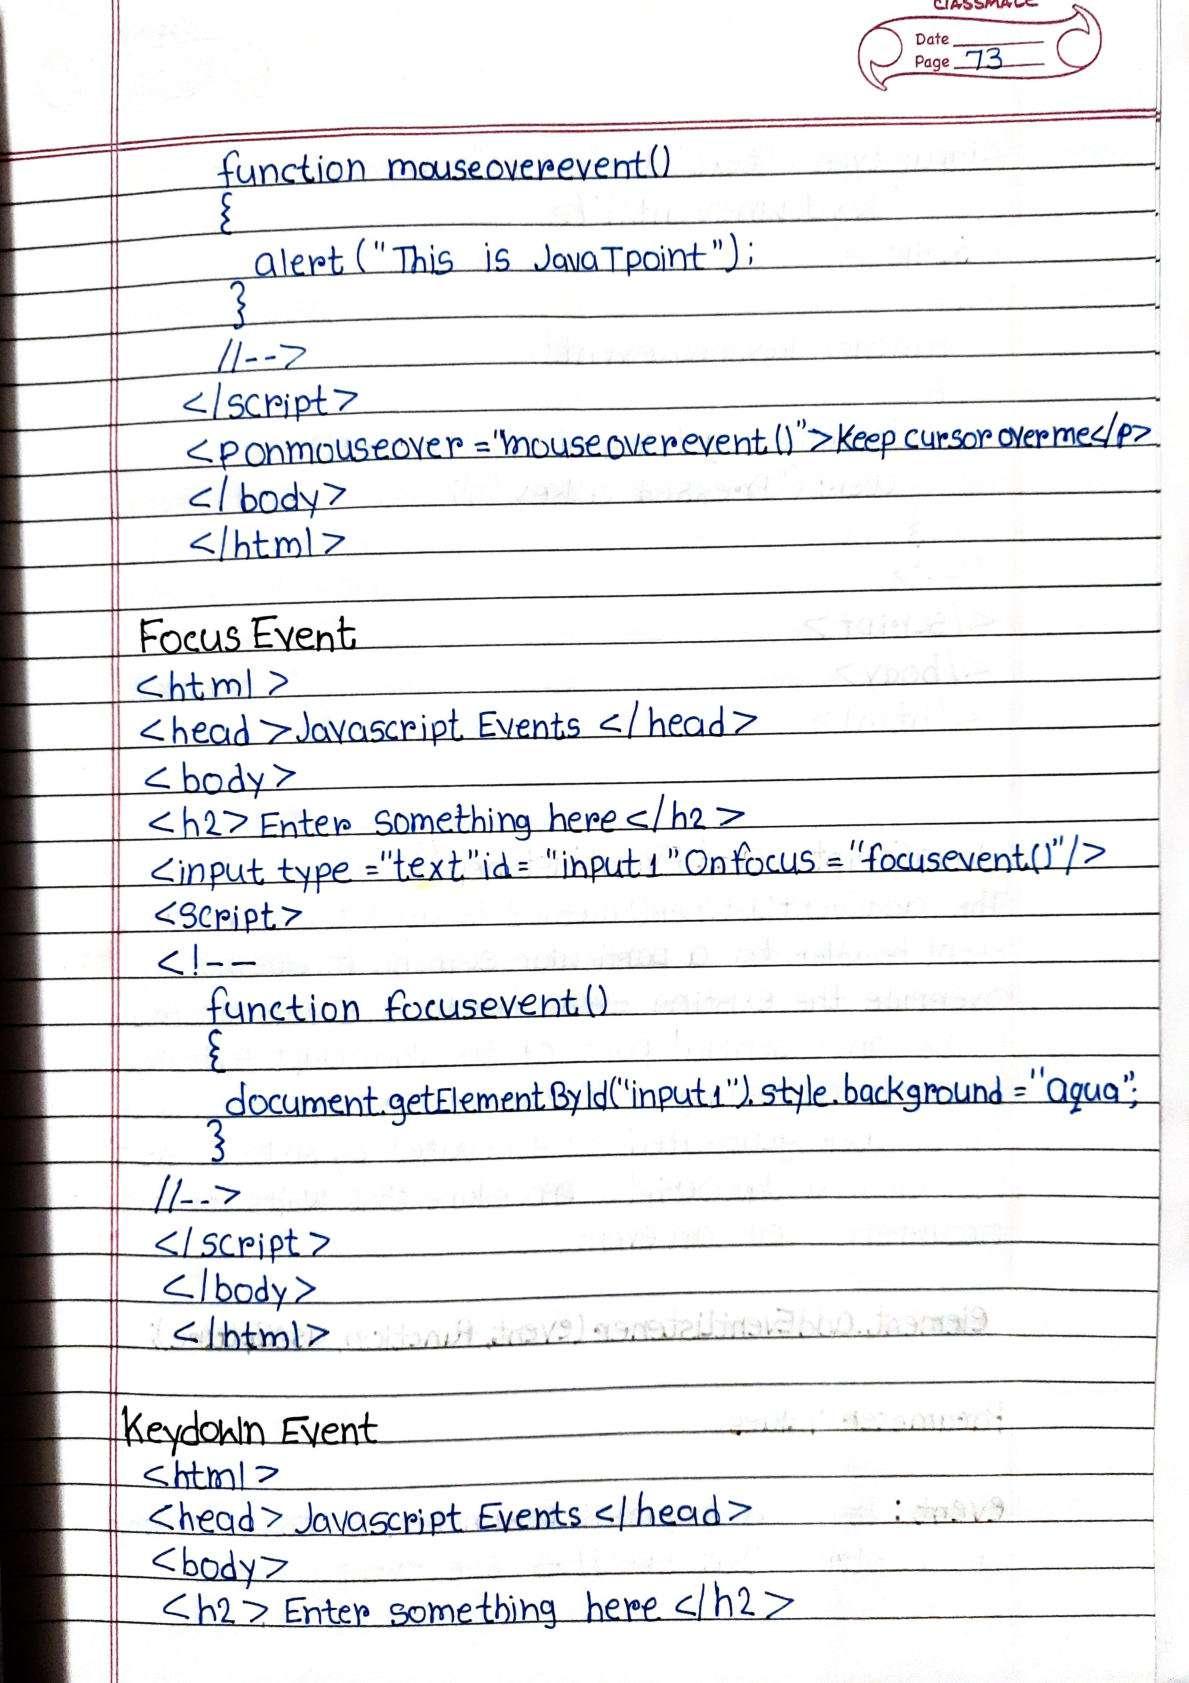 classmate
Date
Page 73
function mouseoverevent()
{
alert("This is JavaTpoint");
}
//-->
</script>
<p onmouseover="mouseoverevent()">Keep cursor over me</p>
</body>
</html>
Focus Event
<html>
<head>Javascript Events </head>
<body>
<h2> Enter something here</h2>
<input type="text" id="input1" Onfocus="focusevent()"/>
<script>
<!--
function focusevent()
{
document.getElementById("input1").style.background="aqua";
}
//-->
</script>
</body>
</html>
Keydown Event
<html>
<head> Javascript Events </head>
<body>
<h2> Enter something here </h2>